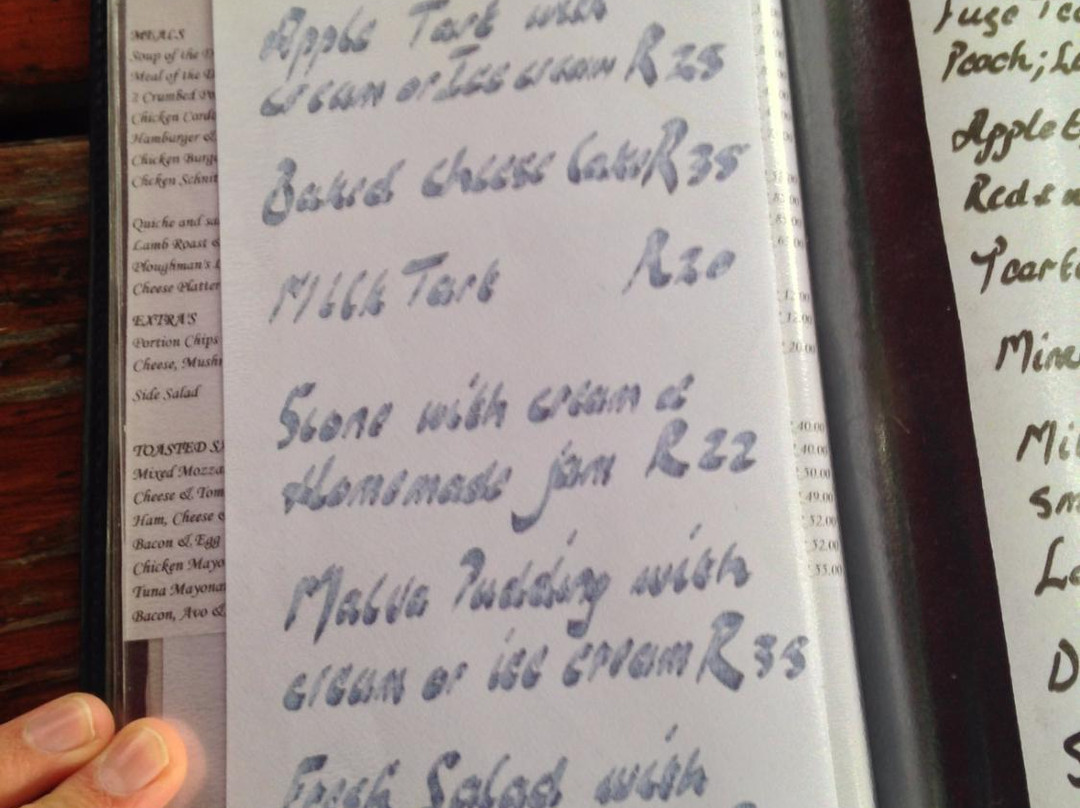 MEALS
Soup of the D
Meal of the D
2 Crumbed
Chicken Cord
Hamburger &
Chicken Burg
Chcken Schnit
Quiche and sa
Lamb Roast &
Ploughman's
Cheese Platter
EXTRA'S
Portion Chips
Cheese, Mush
Side Salad
TOASTED S
Mixed Mozza
Cheese & Tom
Ham, Cheese
Bacon & Egg
Chicken Mayo
Tuna Mayona
Bacon, Avo &
Apple Tart with
cream or Ice cream R25
Baked cheese CakeR35
Milk Tart R20
Scone with cream &
Homemade jam R22
Malva Pudding with
cream or ice cream R35
Fresh Salad with
12.00
20.00
40.00
40.00
50.00
49.00
52.00
52.00
55.00
Peach; Le
Apple
Red &
Mine
Mi
Sm
Le
D
S